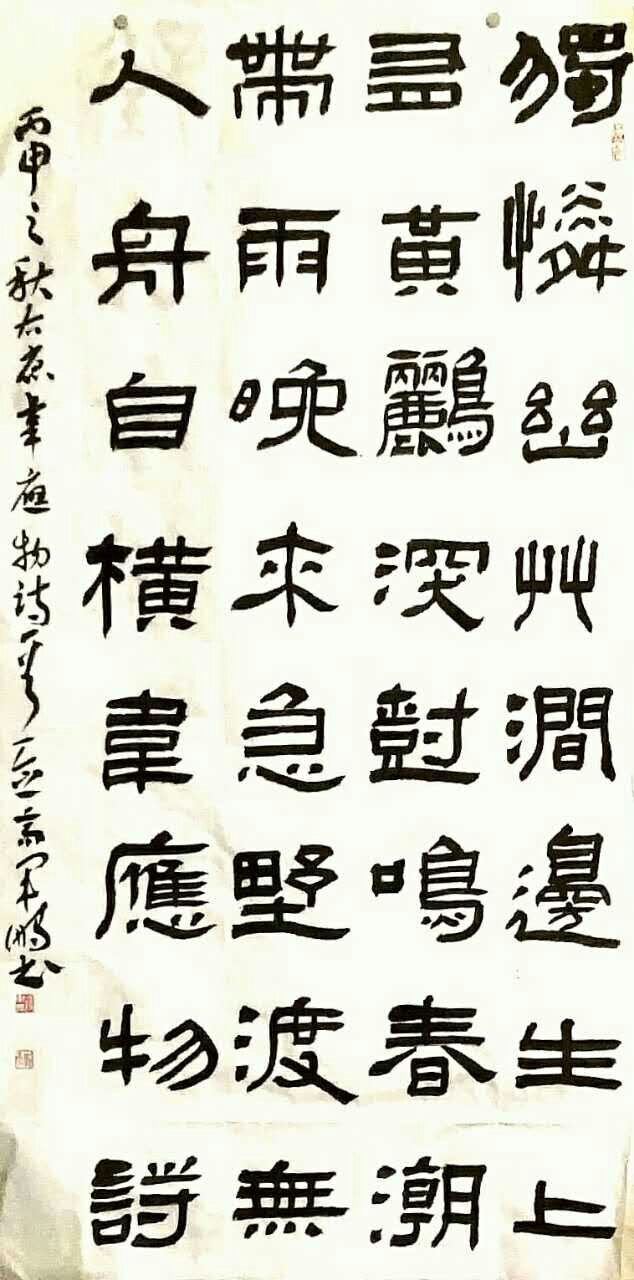 獨憐幽艸澗邊生上
尋黃鸝深尌鳴春潮
帶雨晚來急野渡無
人舟自橫韋應物詩
丙申之秋右录韋應物詩一首 軍鵬书